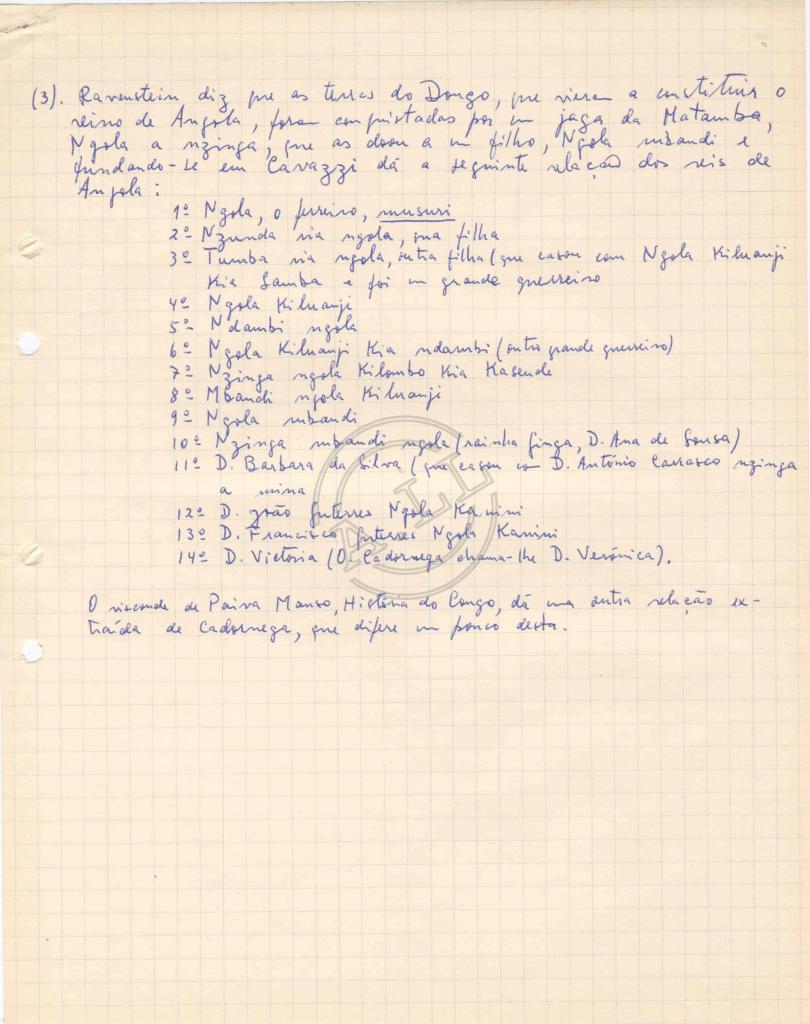 (3). Ravenstein diz que as terras do Dongo, que vieram a constituir o
reino de Angola, foram conquistadas por um jaga da Matamba,
Ngola a nzinga, que as doou a um filho, Ngola mbandi e
fundando-se em Cavazzi dá a seguinte relação dos reis de
Angola:
1º Ngola, o ferreiro, musuri
2º Nzunda ria ngola, sua filha
3º Tumba ria ngola, outra filha (que casou com Ngola Kiluanji
Kia Samba e foi um grande guerreiro
4º Ngola Kiluanji
5º Ndambi ngola
6º Ngola Kiluanji Kia ndambi (outro grande guerreiro)
7º Nzinga ngola Kilombo Kia Kasende
8º Mbandi ngola Kiluanji
9º Ngola mbandi
10º Nzinga mbandi ngola (rainha Ginga, D. Ana de Sousa)
11º D. Barbara da Silva (que casou com D. António Carrasco nzinga
a mina
12º D. João Guterres Ngola Kanini
13º D. Francisco Guterres Ngola Kanini
14º D. Victoria (O. Cadornega chama-lhe D. Verónica).
O visconde de Paiva Manso, História do Congo, dá uma outra relação ex-
traída de Cadornega, que difere um pouco desta.
ALL